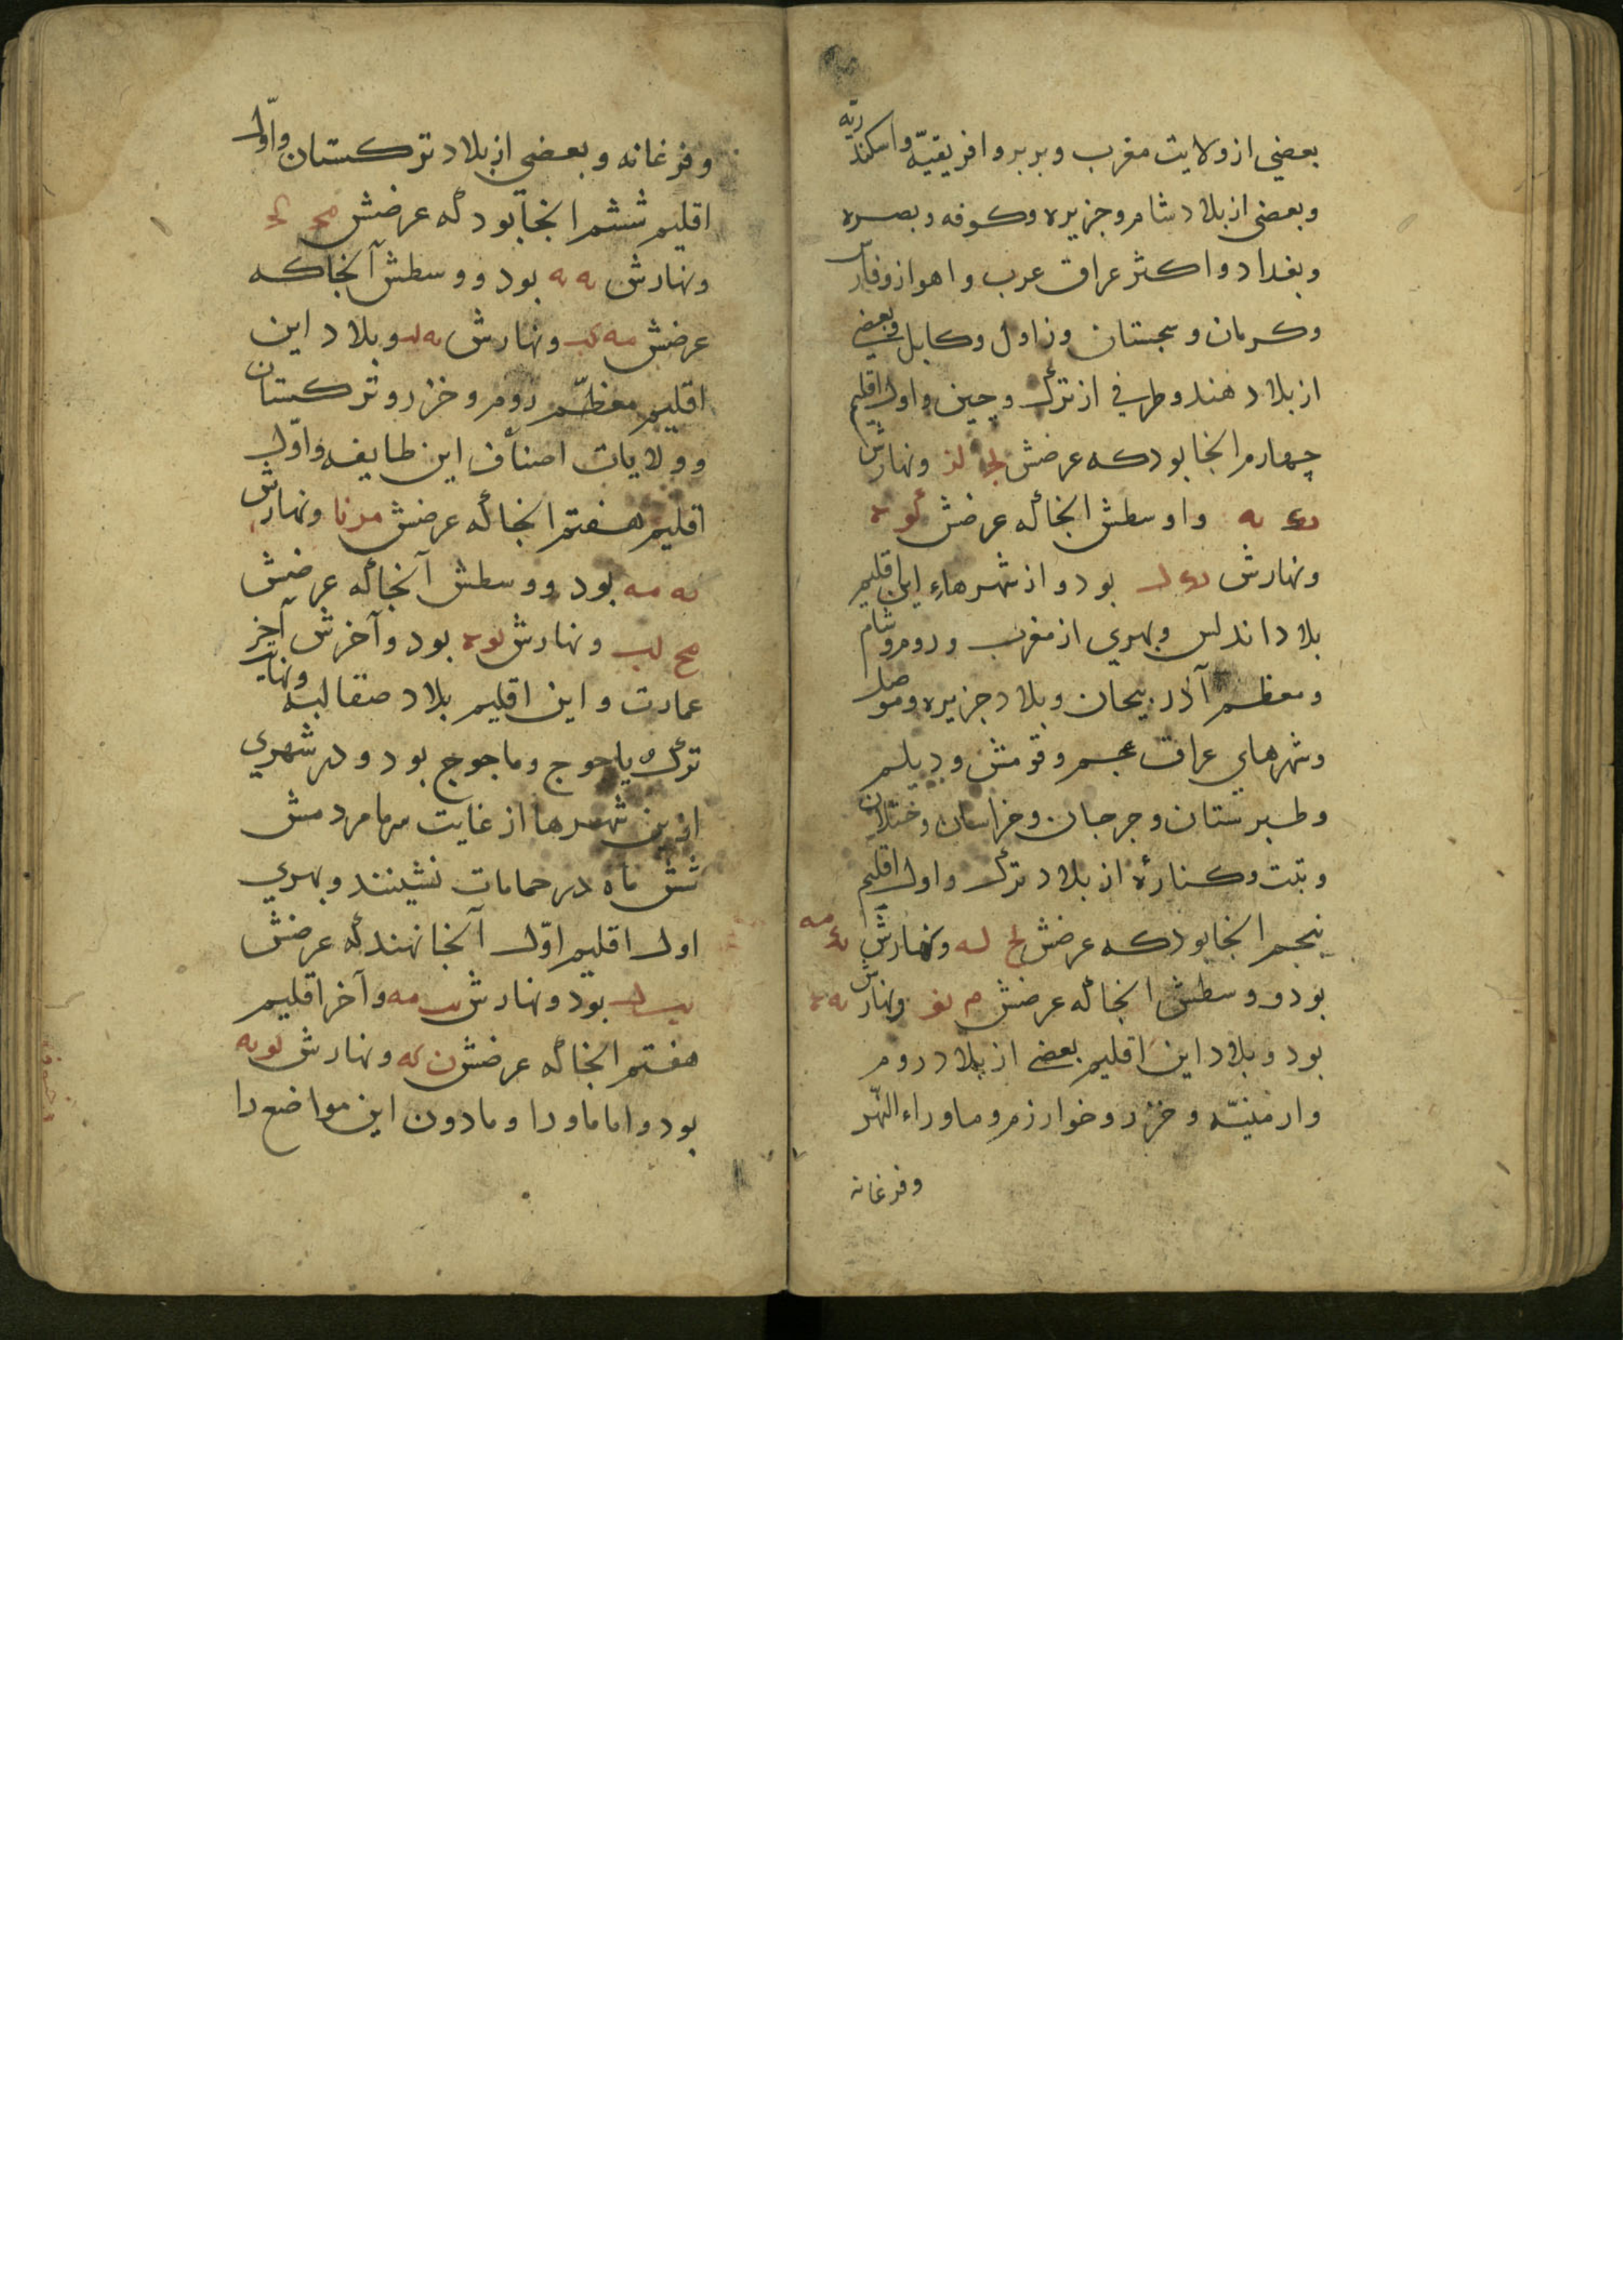 بعضی از ولایت مغرب و بربر و افریقیّه و اسکندریّه
و بعضی از بلاد شام و جزیره و کوفه و بصره
و بغداد و اکثر عراق عرب و اهواز و فارس
و کرمان و سجستان و زاول و کابل و بعضی
از بلاد هند و طرفی از ترک و چین و اول اقلیم
چهارم انجا بود که عرضش لج لز و نهارش
ید یه و اوسطش انجا که عرض لو
و نهارش ید ل بود و از شهرهاء این اقلیم
بلاد اندلس و بهری از مغرب و روم و شام
و معظم آذربیجان و بلاد جزیره و موصل
و شهرهای عراق عجم و قومش و دیلم
و طبرستان و جرجان و خراسان و ختلان
و تبت و کنارهٔ از بلاد ترک و اول اقلیم
پنجم انجا بود که عرضش لح له و نهارش ید مه
بود و وسطش انجا که عرضش م نو و نهارش یه
بود و بلاد این اقلیم بعضی از بلاد روم
و ارمنیّه و خزر و خوارزم و ماوراء النّهر
و فرغانه
و فرغانه و بعضی از بلاد ترکستان و اوّل
اقلیم ششم انجا بود که عرضش مج کح
و نهارش یه یه بود و وسطش آنجا که
عرضش مه کب و نهارش یه ل و بلاد این
اقلیم معظّم روم و خزر و ترکستان
و ولایات اصناف این طایفه و اوّل
اقلیم هفتم انجا که عرضش مز نا و نهارش
یه مه بود و وسطش آنجا که عرضش
مح لب و نهارش یو بود و آخرش آخر
عمارت و این اقلیم بلاد صقالبه و نهایت
ترک یاجوج و ماجوج بود و در شهری
ازین شهرها از غایت سرما مردمش
شش ماه در حمامات نشینند و بهری
اول اقلیم اوّل آنجا نهند که عرضش
یب ل بود و نهارش یب مه و آخر اقلیم
هفتم انجا که عرضش ن که و نهارش یو یه
بود و اما ماورا و مادون این مواضع را